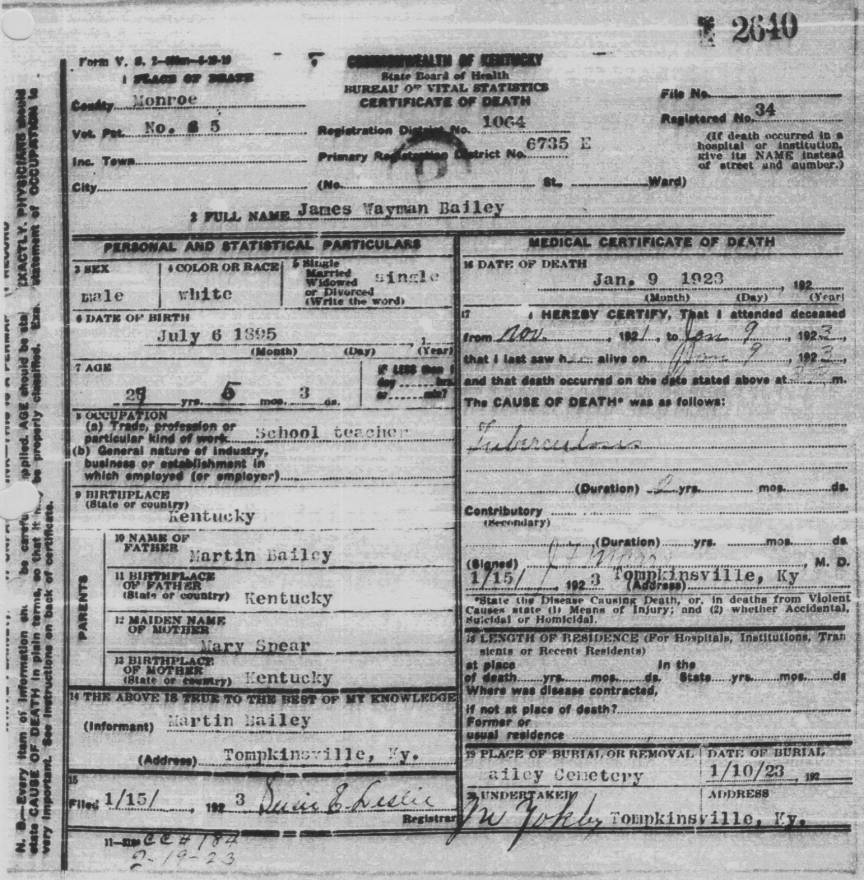 2640
Form V. S.
COMMONWEALTH OF KENTUCKY
State Board of Health
BUREAU OF VITAL STATISTICS
CERTIFICATE OF DEATH
1 PLACE OF DEATH
County Monroe
Vot. Pct. No. 5
Inc. Town
City
Registration District No. 1064
Primary Registration District No. 6735 E
(No. St., Ward)
File No.
Registered No. 34
(If death occurred in a
hospital or institution,
give its NAME instead
of street and number.)
2 FULL NAME James Wayman Bailey
PERSONAL AND STATISTICAL PARTICULARS
3 SEX
male
4 COLOR OR RACE
white
5 Single
Married
Widowed
or Divorced
(Write the word)
single
6 DATE OF BIRTH
July 6 1895
(Month) (Day) (Year)
7 AGE
yrs. mos. 3 ds.
IF LESS than 1
day hrs.
or min?
8 OCCUPATION
(a) Trade, profession or
particular kind of work School teacher
(b) General nature of industry,
business or establishment in
which employed (or employer)
9 BIRTHPLACE
(State or country)
Kentucky
PARENTS
10 NAME OF
FATHER
Martin Bailey
11 BIRTHPLACE
OF FATHER
(State or country) Kentucky
12 MAIDEN NAME
OF MOTHER
Mary Spear
13 BIRTHPLACE
OF MOTHER
(State or country) Kentucky
14 THE ABOVE IS TRUE TO THE BEST OF MY KNOWLEDGE
(Informant) Martin Bailey
(Address) Tompkinsville, Ky.
15
Filed 1/15/ 192 3 Susie E. Leslie
Registrar
MEDICAL CERTIFICATE OF DEATH
16 DATE OF DEATH
Jan. 9 1923 192
(Month) (Day) (Year)
17 I HEREBY CERTIFY, That I attended deceased
from Nov. 1921, to Jan 9 1923,
that I last saw h alive on Jan 9 1923,
and that death occurred on the date stated above at m.
The CAUSE OF DEATH* was as follows:
Tuberculosis
(Duration) 2 yrs. mos. ds.
Contributory
(Secondary)
(Duration) yrs. mos. ds.
(Signed) M. D.
1/15/ 192 3 Tompkinsville, Ky
(Address)
*State the Disease Causing Death, or, in deaths from Violent
Causes state (1) Means of Injury; and (2) whether Accidental,
Suicidal or Homicidal.
18 LENGTH OF RESIDENCE (For Hospitals, Institutions, Tran
sients or Recent Residents)
at place In the
of death yrs. mos. ds. State yrs. mos. ds
Where was disease contracted,
if not at place of death?
Former or
usual residence
19 PLACE OF BURIAL OR REMOVAL
ailey Cemetery
DATE OF BURIAL
1/10/23, 192
20 UNDERTAKER
ADDRESS
Tompkinsville, Ky.
CC#184
2-19-23
N. B.—Every item of information
state CAUSE OF DEATH in plain terms, so that it
very important. See instructions on back of certificate.